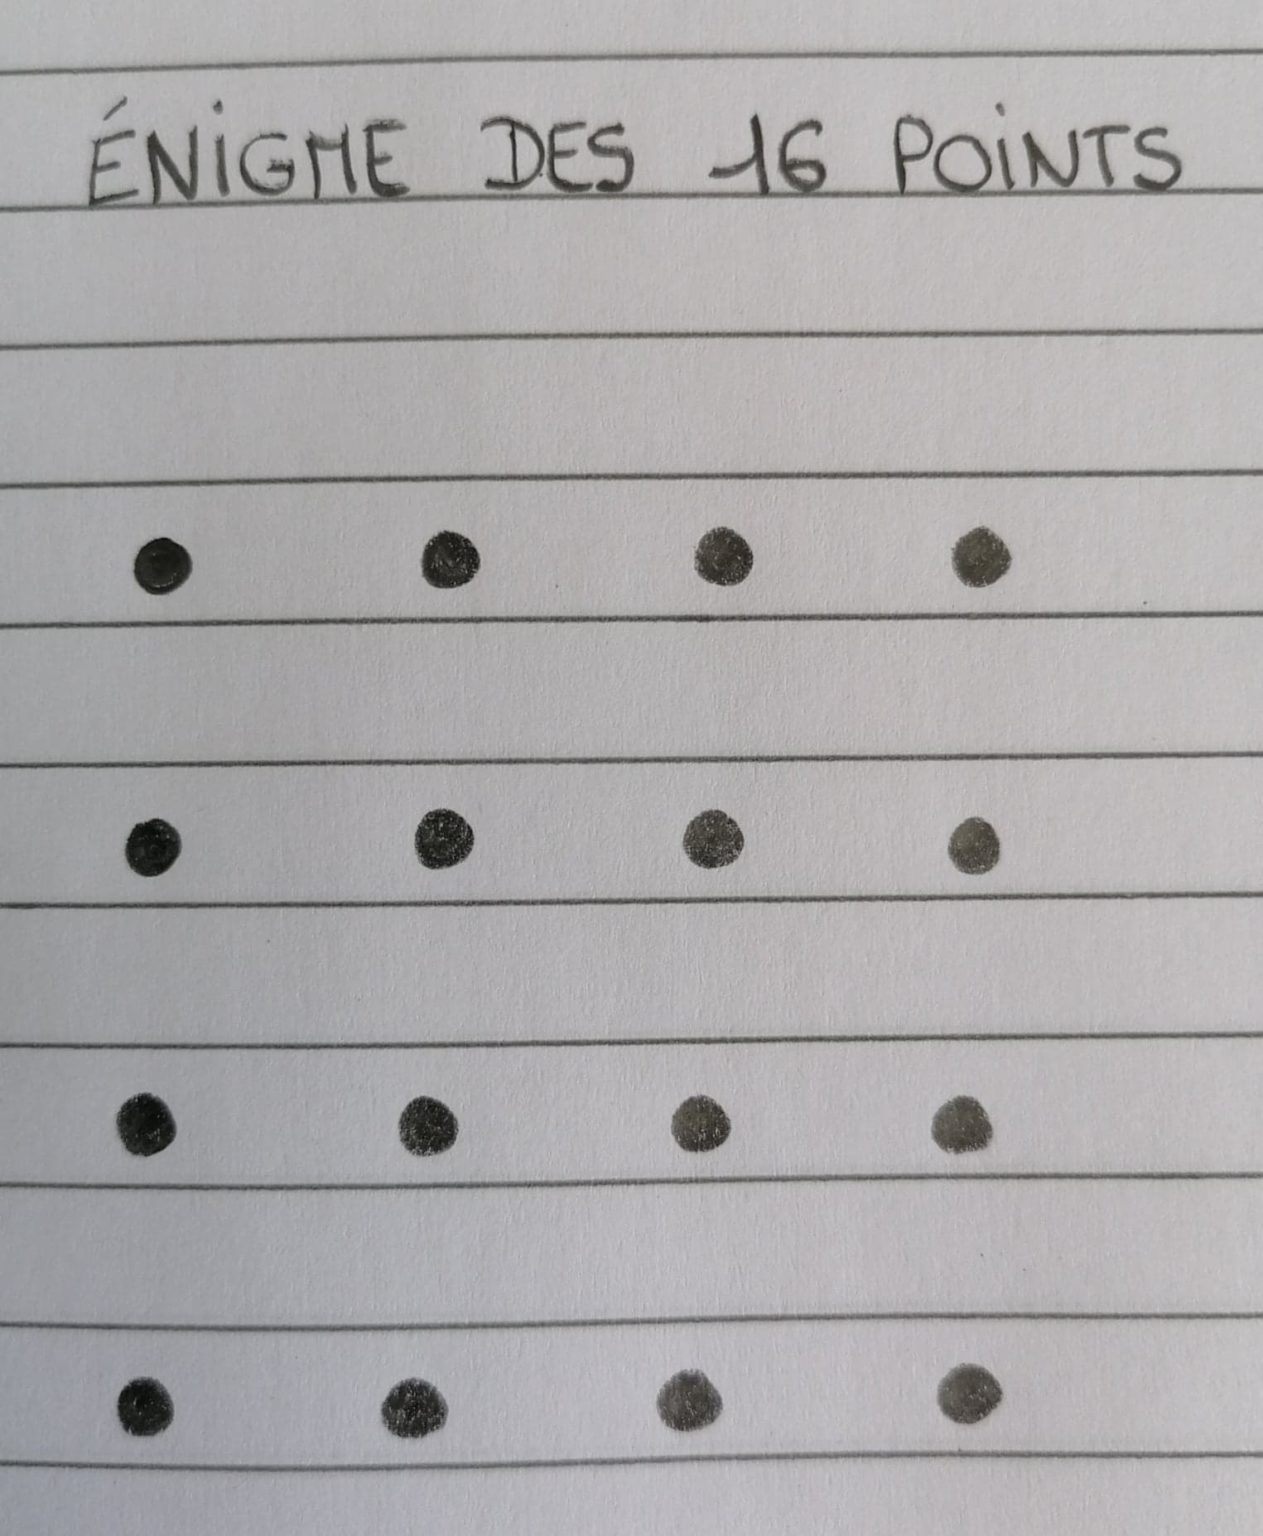 ÉNIGME DES 16 POINTS